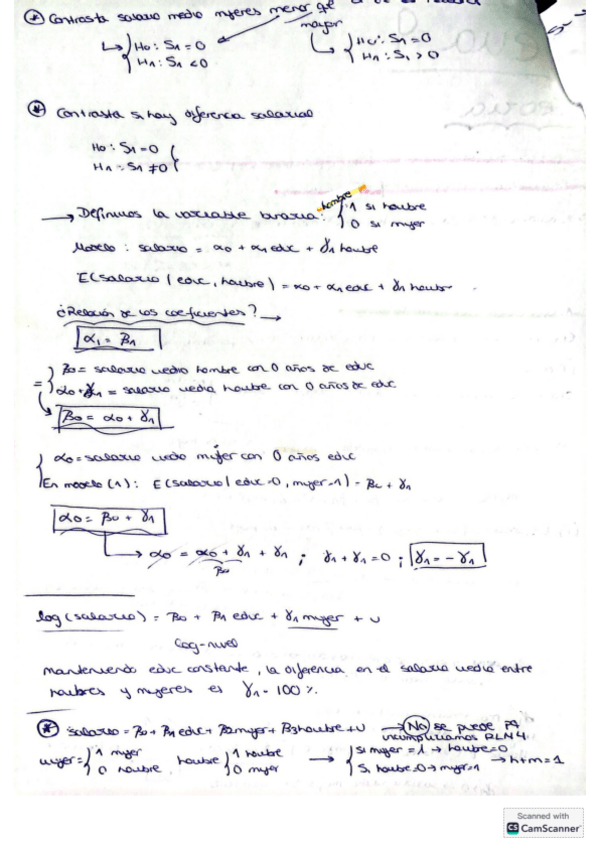 * Contrasta salario medio mujeres menor que el de los hombres
mayor
↳ { H0: S1 = 0
H1: S1 < 0
↳ { H0: S1 = 0
H1: S1 > 0
* Contrasta si hay diferencia salarial
H0: S1 = 0
H1: S1 ≠ 0 {
→ Definimos la variable binaria: hombre { 1 si hombre
0 si mujer
Modelo: salario = α0 + α1 educ + γ1 hombre
E(salario | educ, hombre) = α0 + α1 educ + γ1 hombre
¿Relación de los coeficientes? →
α1 = β1
= { β0 = salario medio hombre con 0 años de educ
α0 + γ1 = salario medio hombre con 0 años de educ
β0 = α0 + γ1
{ α0 = salario medio mujer con 0 años educ
En modelo (1): E(salario | educ=0, mujer=1) = β0 + γ1
α0 = β0 + γ1
→ α0 = α0 + γ1 + γ1 ; γ1 + γ1 = 0 ; γ1 = - γ1
β0
log(salario) = β0 + β1 educ + γ1 mujer + u
log-nivel
manteniendo educ constante, la diferencia en el salario medio entre
hombres y mujeres es γ1 · 100 %.
* salario = β0 + β1 educ + β2 mujer + β3 hombre + u → No se puede pq
incumpliríamos RLM4
mujer = { 1 mujer
0 hombre
hombre { 1 hombre
0 mujer
→ { Si mujer = 1 → hombre = 0
Si hombre = 0 → mujer = 1
→ h + m = 1
Scanned with
CS CamScanner